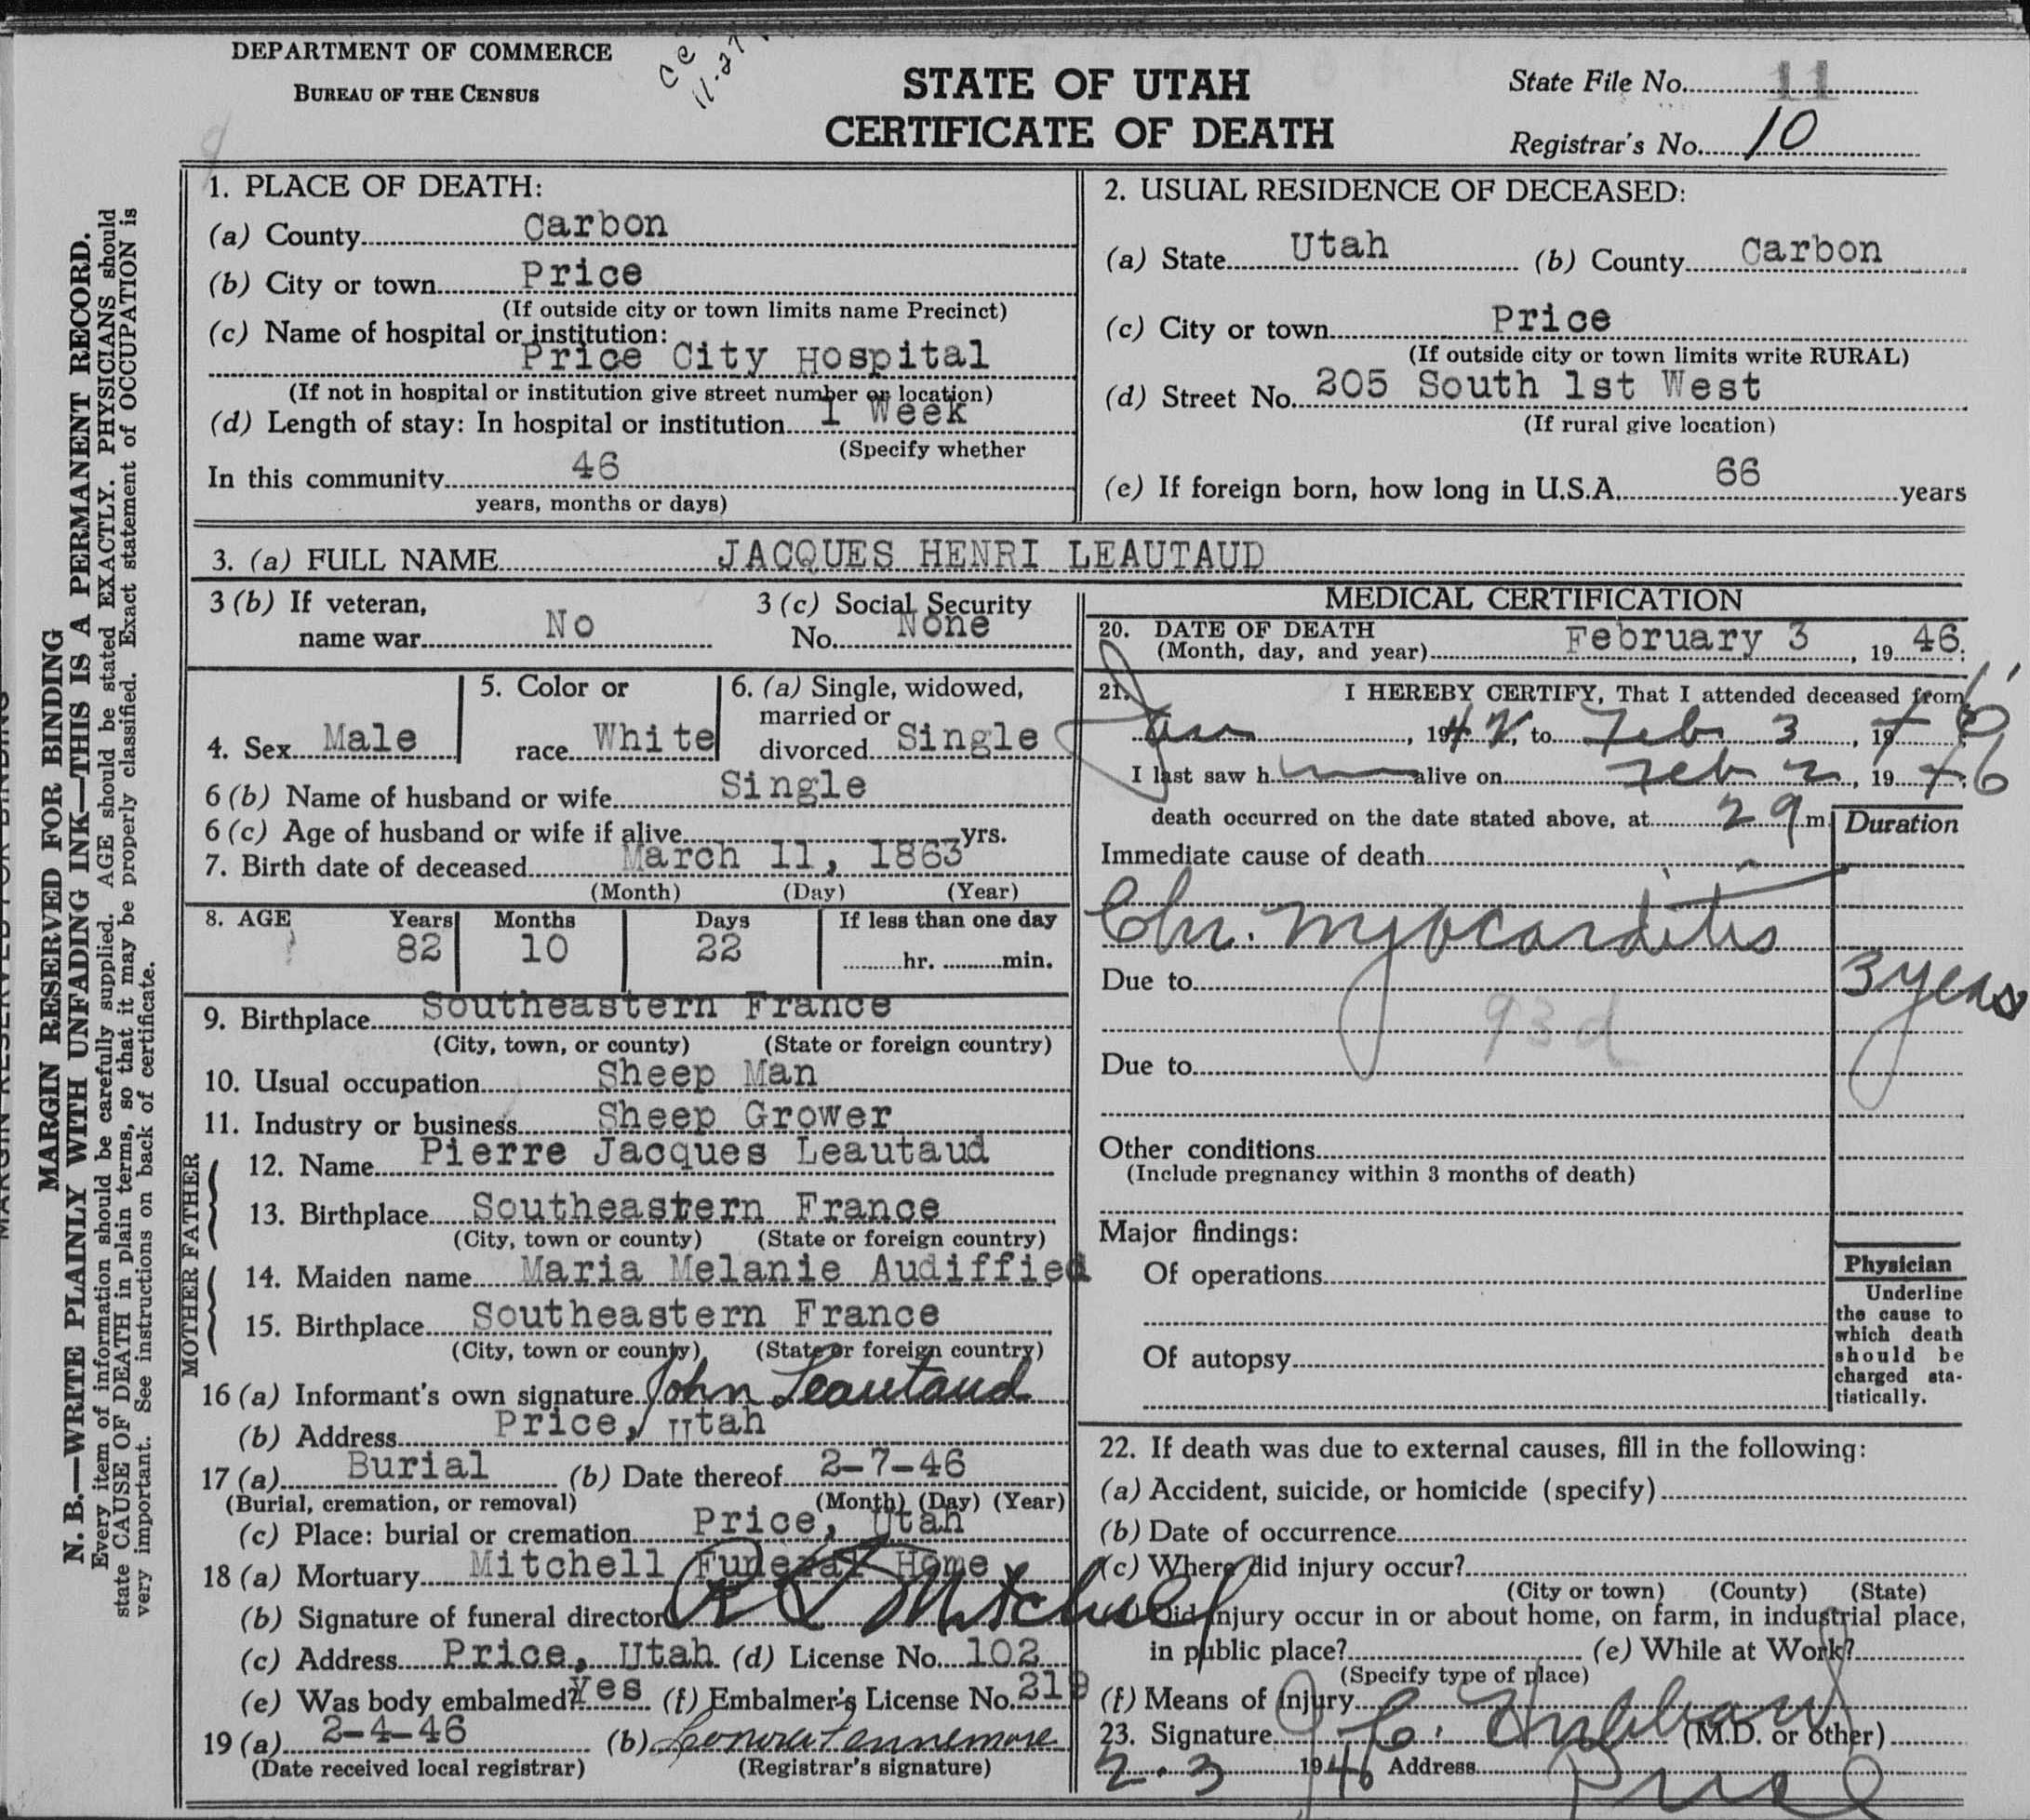 DEPARTMENT OF COMMERCE
BUREAU OF THE CENSUS
STATE OF UTAH
CERTIFICATE OF DEATH
State File No. 11
Registrar's No. 10
MARGIN RESERVED FOR BINDING
N. B.—WRITE PLAINLY WITH UNFADING INK—THIS IS A PERMANENT RECORD.
Every item of information should be carefully supplied. AGE should be stated EXACTLY. PHYSICIANS should
state CAUSE OF DEATH in plain terms, so that it may be properly classified. Exact statement of OCCUPATION is
very important. See instructions on back of certificate.
1. PLACE OF DEATH:
(a) County Carbon
(b) City or town Price
(If outside city or town limits name Precinct)
(c) Name of hospital or institution:
Price City Hospital
(If not in hospital or institution give street number or location)
(d) Length of stay: In hospital or institution 1 Week
(Specify whether
In this community 46
years, months or days)
2. USUAL RESIDENCE OF DECEASED:
(a) State Utah (b) County Carbon
(c) City or town Price
(If outside city or town limits write RURAL)
(d) Street No. 205 South 1st West
(If rural give location)
(e) If foreign born, how long in U.S.A. 66 years
3. (a) FULL NAME JACQUES HENRI LEAUTAUD
3 (b) If veteran,
name war No
3 (c) Social Security
No. None
4. Sex Male
5. Color or
race White
6. (a) Single, widowed,
married or
divorced Single
6 (b) Name of husband or wife Single
6 (c) Age of husband or wife if alive yrs.
7. Birth date of deceased March 11, 1863
(Month) (Day) (Year)
8. AGE Years Months Days If less than one day
82 10 22 hr. min.
9. Birthplace Southeastern France
(City, town, or county) (State or foreign country)
10. Usual occupation Sheep Man
11. Industry or business Sheep Grower
FATHER
12. Name Pierre Jacques Leautaud
13. Birthplace Southeastern France
(City, town or county) (State or foreign country)
MOTHER
14. Maiden name Maria Melanie Audiffied
15. Birthplace Southeastern France
(City, town or county) (State or foreign country)
16 (a) Informant's own signature John Leautaud
(b) Address Price, Utah
17 (a) Burial (b) Date thereof 2-7-46
(Burial, cremation, or removal) (Month) (Day) (Year)
(c) Place: burial or cremation Price, Utah
18 (a) Mortuary Mitchell Funeral Home
(b) Signature of funeral director Mitchell
(c) Address Price, Utah (d) License No. 102
(e) Was body embalmed? Yes (f) Embalmer's License No. 219
19 (a) 2-4-46 (b) Leonora Fennemore
(Date received local registrar) (Registrar's signature)
MEDICAL CERTIFICATION
20. DATE OF DEATH
(Month, day, and year) February 3, 1946.
21. I HEREBY CERTIFY, That I attended deceased from
Jan, 1942, to Feb 3, 1946
I last saw h im alive on Feb 2, 1946;
death occurred on the date stated above, at m.
Duration
Immediate cause of death
Chr. myocarditis
3 years
Due to
93d
Due to
Other conditions
(Include pregnancy within 3 months of death)
Major findings:
Of operations
Of autopsy
Physician
Underline
the cause to
which death
should be
charged sta-
tistically.
22. If death was due to external causes, fill in the following:
(a) Accident, suicide, or homicide (specify)
(b) Date of occurrence
(c) Where did injury occur?
(City or town) (County) (State)
Did injury occur in or about home, on farm, in industrial place,
in public place? (e) While at Work?
(Specify type of place)
(f) Means of Injury
23. Signature Hubbard (M.D. or other)
2.3 1946 Address Price